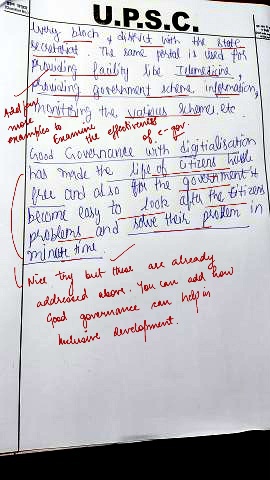 U.P.S.C.
every block & district with the state
secretariat. The same portal is used for
providing facility like Telemedicine,
providing government scheme information,
monitoring the various schemes, etc.
Add few
more
examples to
Examine the effectiveness
of e-gov.
Good Governance with digitalisation
has made the life of citizens hassle
free and also for the government it
become easy to look after the citizens
problems and solve their problem in
minute time.
Nice try but these are already
addressed above. You can add how
Good governance can help in
Inclusive development.